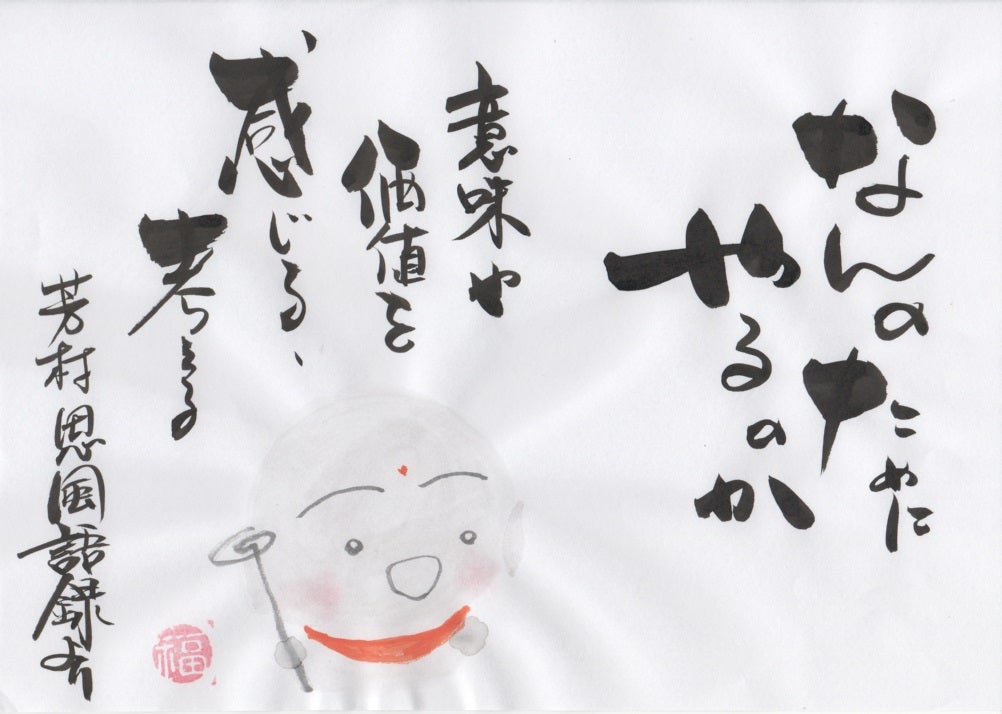 なんのために
やるのか
意味や
価値を
感じる、
考える
芳村思風語録より
福